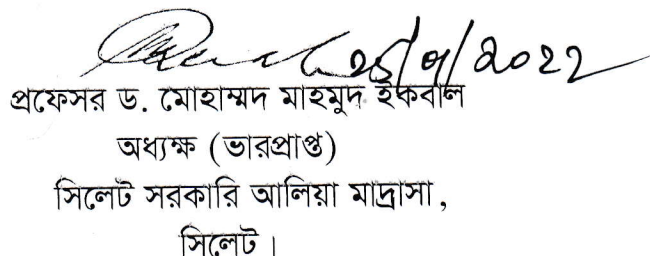 প্রফেসর ড. মোহাম্মদ মাহমুদ ইকবাল
অধ্যক্ষ (ভারপ্রাপ্ত)
সিলেট সরকারি আলিয়া মাদ্রাসা,
সিলেট।